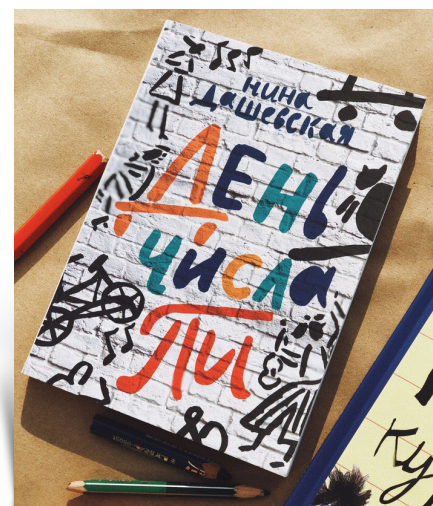 нина
Дашевская
День
числа
Пи
ку